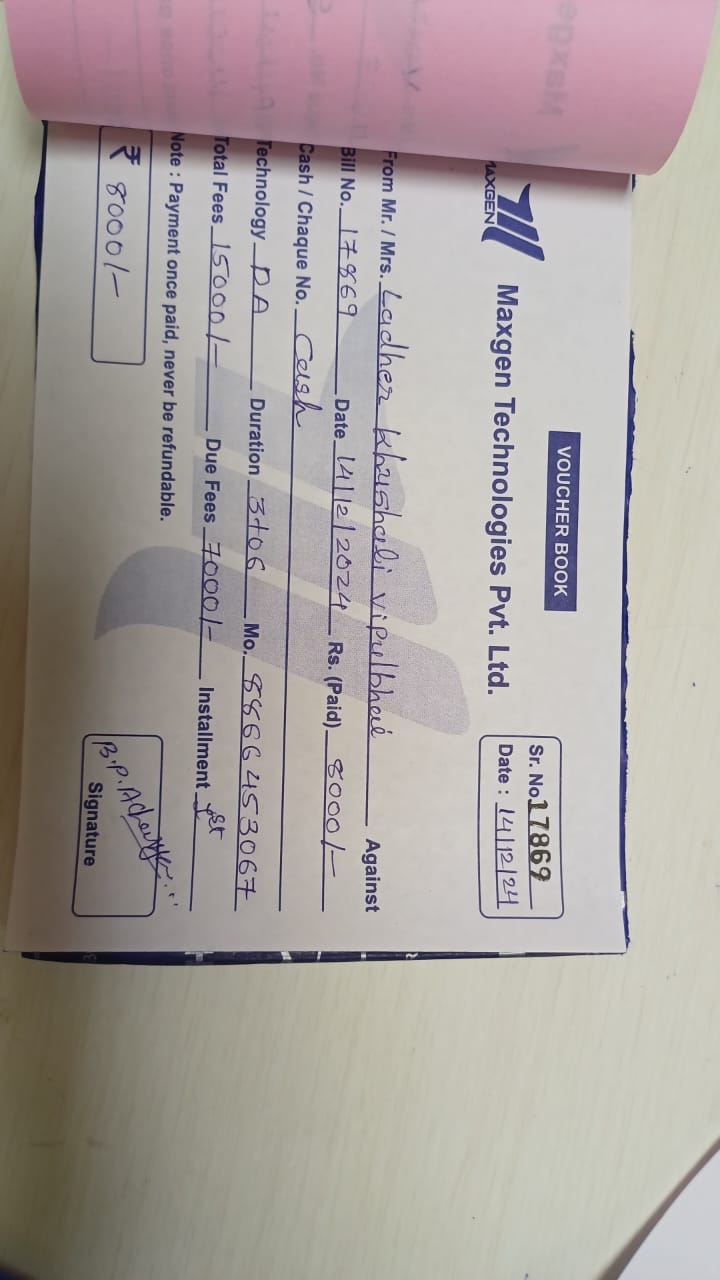 VOUCHER BOOK
MAXGEN
Maxgen Technologies Pvt. Ltd.
Sr. No 17869
Date : 14/12/24
From Mr. / Mrs. Ladher Khushali vipulbhai Against
Bill No. 17869 Date 14/12/2024 Rs. (Paid) 8000/-
Cash / Chaque No. Cash
Technology DA Duration 3to6 Mo. 8866453067
Total Fees 15000/- Due Fees 7000/- Installment 1st
Note : Payment once paid, never be refundable.
₹ 8000/-
B.P.
Signature